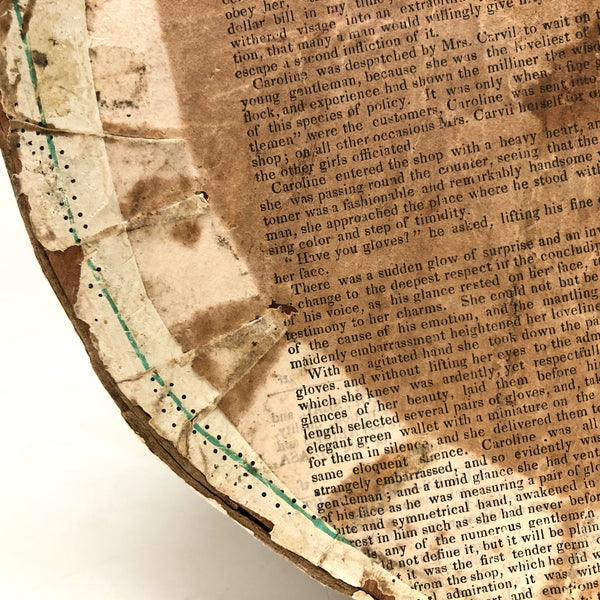 obey her,
dollar bill in my time,
withered visage into an extraordin
tion, that many a man would willingly give my
escape a second infliction of it.
Caroline was despatched by Mrs. Carvil to wait on
young gentleman, because she was the loveliest of
flock, and experience had shown the milliner the wisd
of this species of policy. It was only when fine g
tlemen" were the customers, Caroline was sent into
shop; on all other occasions Mrs. Carvil herself or o
the other girls officiated.
Caroline entered the shop with a heavy heart, an
she was passing round the counter, seeing that the
tomer was a fashionable and remarkably handsome y
man, she approached the place where he stood with
sing color and step of timidity.
"Have you gloves?" he asked, lifting his fine
her face.
There was a sudden glow of surprise and an inv
change to the deepest respect in the concludin
his voice, as his glance rested on her face,
testimony to her charms. She could not but be
of the cause of his emotion, and the mantling
maidenly embarrassment heightened her lovelin
With an agitated hand she took down the pa
gloves, and without lifting her eyes to the adm
which she knew was ardently yet respectfull
glances of her beauty, laid them before hi
length selected several pairs of gloves, and, tak
elegant green wallet with a miniature on the
for them in silence, and she delivered them t
same eloquent silence. Caroline was all
strangely embarrassed, and so evidently was
gentleman; and a timid glance she had vent
of his face as he was measuring a pair of glo
white and symmetrical hand, awakened in
rest in him such as she had never before
any of the numerous gentlemen
ld not define it, but it will be plain
it was the first tender germ
from the shop, which he did w
admiration, it was with
heart and emotions